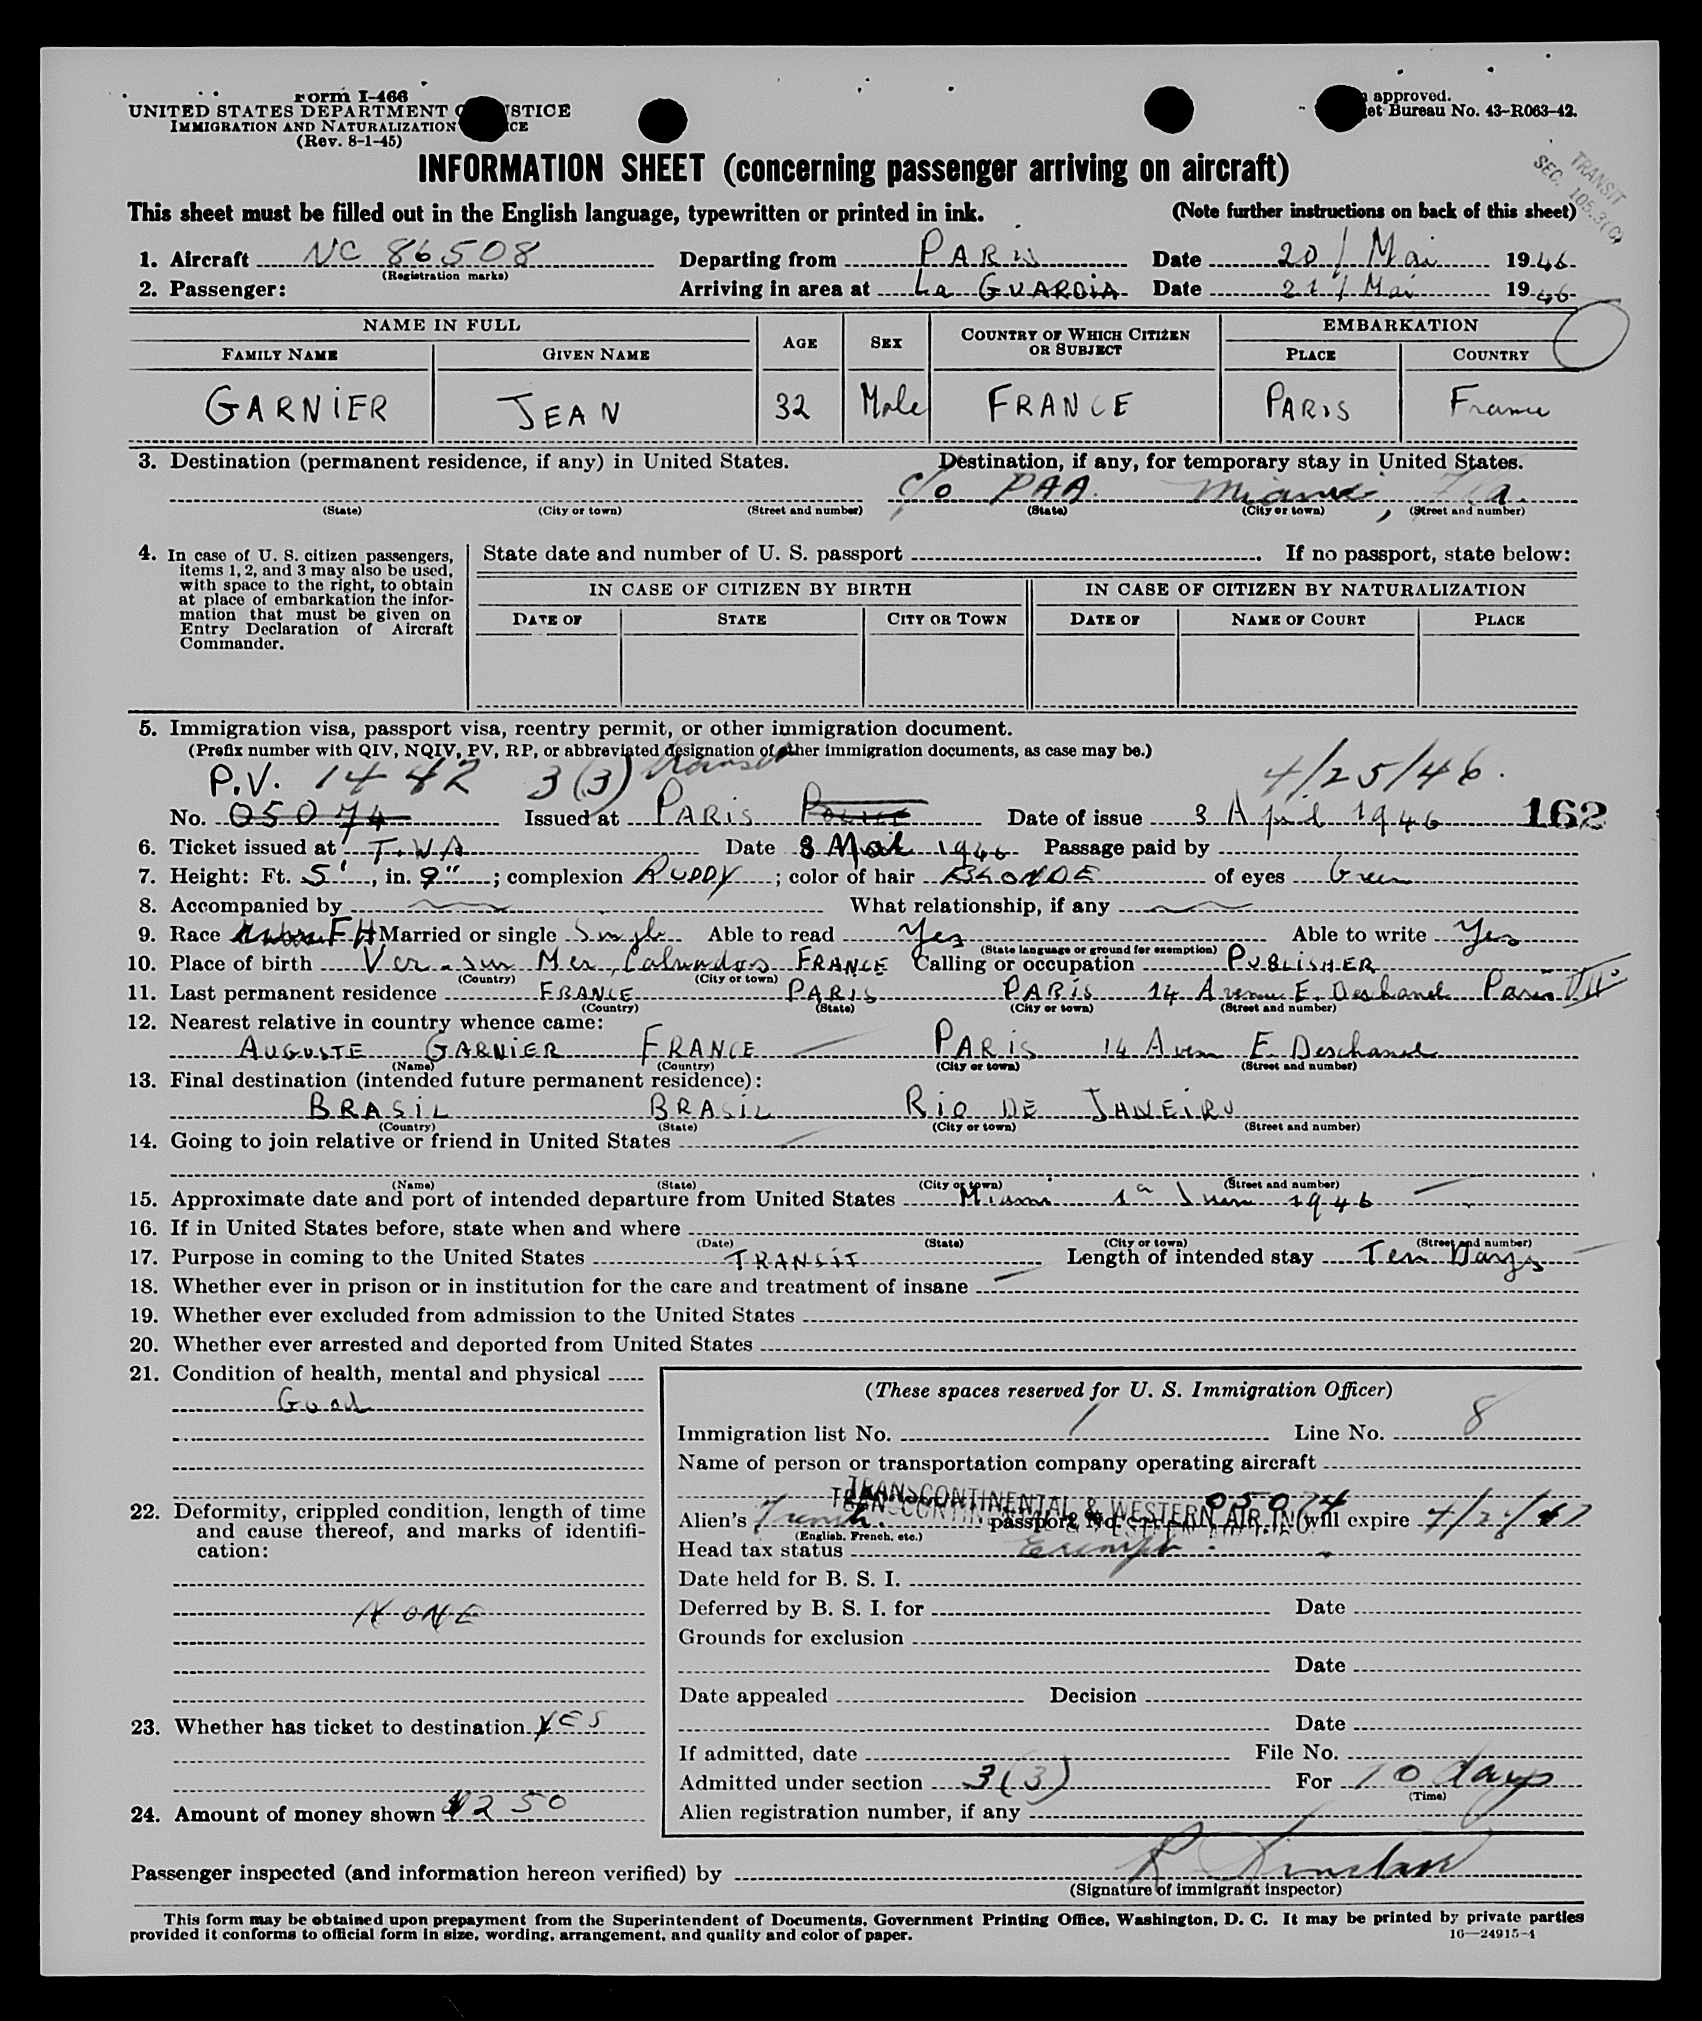 Form I-466
UNITED STATES DEPARTMENT OF JUSTICE
IMMIGRATION AND NATURALIZATION SERVICE
(Rev. 8-1-45)
approved.
et Bureau No. 43-R063-42.
TRANSIT
SEC. 105.3(C)
INFORMATION SHEET (concerning passenger arriving on aircraft)
This sheet must be filled out in the English language, typewritten or printed in ink. (Note further instructions on back of this sheet)
1. Aircraft NC 86508 Departing from PARIS Date 20/Mai 1946
(Registration marks)
2. Passenger: Arriving in area at La GUARDIA Date 21/Mai 1946
NAME IN FULL AGE SEX COUNTRY OF WHICH CITIZEN OR SUBJECT EMBARKATION
FAMILY NAME GIVEN NAME PLACE COUNTRY
GARNIER JEAN 32 Male FRANCE PARIS France
3. Destination (permanent residence, if any) in United States. Destination, if any, for temporary stay in United States.
c/o PAA. Miami, Fla.
(State) (City or town) (Street and number) (State) (City or town) (Street and number)
4. In case of U. S. citizen passengers, items 1, 2, and 3 may also be used, with space to the right, to obtain at place of embarkation the information that must be given on Entry Declaration of Aircraft Commander.
State date and number of U. S. passport If no passport, state below:
IN CASE OF CITIZEN BY BIRTH IN CASE OF CITIZEN BY NATURALIZATION
DATE OF STATE CITY OR TOWN DATE OF NAME OF COURT PLACE
5. Immigration visa, passport visa, reentry permit, or other immigration document.
(Prefix number with QIV, NQIV, PV, RP, or abbreviated designation of other immigration documents, as case may be.)
P.V. 1442 3(3) transit 4/25/46.
No. 05074 Issued at PARIS Police Date of issue 3 April 1946 162
6. Ticket issued at T.W.A Date 8 Mai 1946 Passage paid by
7. Height: Ft. 5', in. 9"; complexion RUDDY; color of hair BLONDE of eyes Green
8. Accompanied by What relationship, if any
9. Race FH Married or single Single Able to read Yes Able to write Yes
(State language or ground for exemption)
10. Place of birth Ver-sur Mer, Calvados FRANCE Calling or occupation PUBLISHER
(Country) (City or town)
11. Last permanent residence FRANCE PARIS PARIS 14 Avenue E. Deschanel Paris VII
(Country) (State) (City or town) (Street and number)
12. Nearest relative in country whence came:
AUGUSTE GARNIER FRANCE PARIS 14 Aven E. Deschanel
(Name) (Country) (City or town) (Street and number)
13. Final destination (intended future permanent residence):
BRASIL BRASIL RIO DE JANEIRO
(Country) (State) (City or town) (Street and number)
14. Going to join relative or friend in United States
(Name) (State) (City or town) (Street and number)
15. Approximate date and port of intended departure from United States Miami 1a Juin 1946
16. If in United States before, state when and where
(Date) (State) (City or town) (Street and number)
17. Purpose in coming to the United States TRANSIT Length of intended stay Ten Days
18. Whether ever in prison or in institution for the care and treatment of insane
19. Whether ever excluded from admission to the United States
20. Whether ever arrested and deported from United States
21. Condition of health, mental and physical
Good
22. Deformity, crippled condition, length of time and cause thereof, and marks of identification:
NONE
23. Whether has ticket to destination YES
24. Amount of money shown $250
(These spaces reserved for U. S. Immigration Officer)
Immigration list No. 1 Line No. 8
Name of person or transportation company operating aircraft
TRANSCONTINENTAL & WESTERN AIR, INC.
Alien's French passport No. 05074 will expire
(English, French, etc.)
Head tax status Exempt
Date held for B. S. I.
Deferred by B. S. I. for Date
Grounds for exclusion
Date
Date appealed Decision
Date
If admitted, date File No.
Admitted under section 3(3) For 10 days
(Time)
Alien registration number, if any
Passenger inspected (and information hereon verified) by
(Signature of immigrant inspector)
This form may be obtained upon prepayment from the Superintendent of Documents, Government Printing Office, Washington, D. C. It may be printed by private parties
provided it conforms to official form in size, wording, arrangement, and quality and color of paper.
16—24915-1